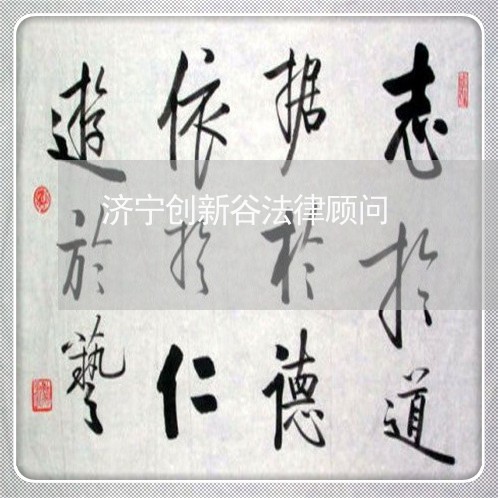 志於道
据於德
依於仁
遊於藝
济宁创新谷法律顾问